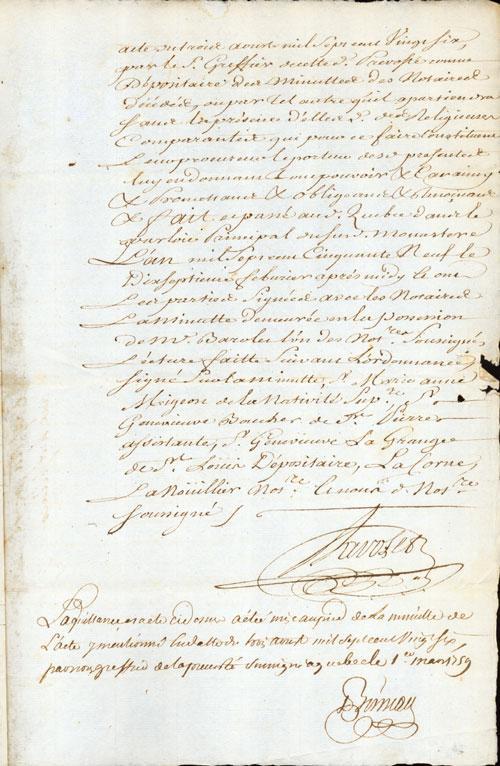 acte du trois aoust mil Sept cent Vingt six,
par le S. Greffier de cette d. Prevosté comme
Dépositaire des Minuttes des Notaires
Décédés, ou par tel autre qu'il apartiendra
Sans la présence d'elles D. des Religieuses
Comparantes, qui pour ce faire Constituent
Leur procureur le porteur des presentes
luy en donnant tout pouvoir & Car ainsy
& Promettant & obligeant & Renonçant
& fait et passé aud. Quebec dans le
parloir Principal dud. Monastere
L'an mil Sept cent Cinquante Neuf le
Dixseptieme fevrier après midy & ont
Les parties Signées avec les Notaires
La minutte demeurée en la possession
de Me. Barolet l'un des Nores. Soussignés
Lecture faitte Suivant L'ordonnance,
signé Sur la minutte, Sr. Marie anne
Migeon de la Nativité Supre. Sr.
Genevieve Boucher de St. Pierre
assistante, Sr. Genevieve La Grange
de St. Louis Dépositaire, La Corne,
Lanoüillier Nore. & nous d. Nore.
Soussigné /
Barolet
La quittance et acte cy dessus a été mis au pied de la minutte de
L'acte y mentionné en datte du trois aoust mil sept cent Vingt six,
par nous greffier de la prevosté soussigné a quebec le 1er mars 1759